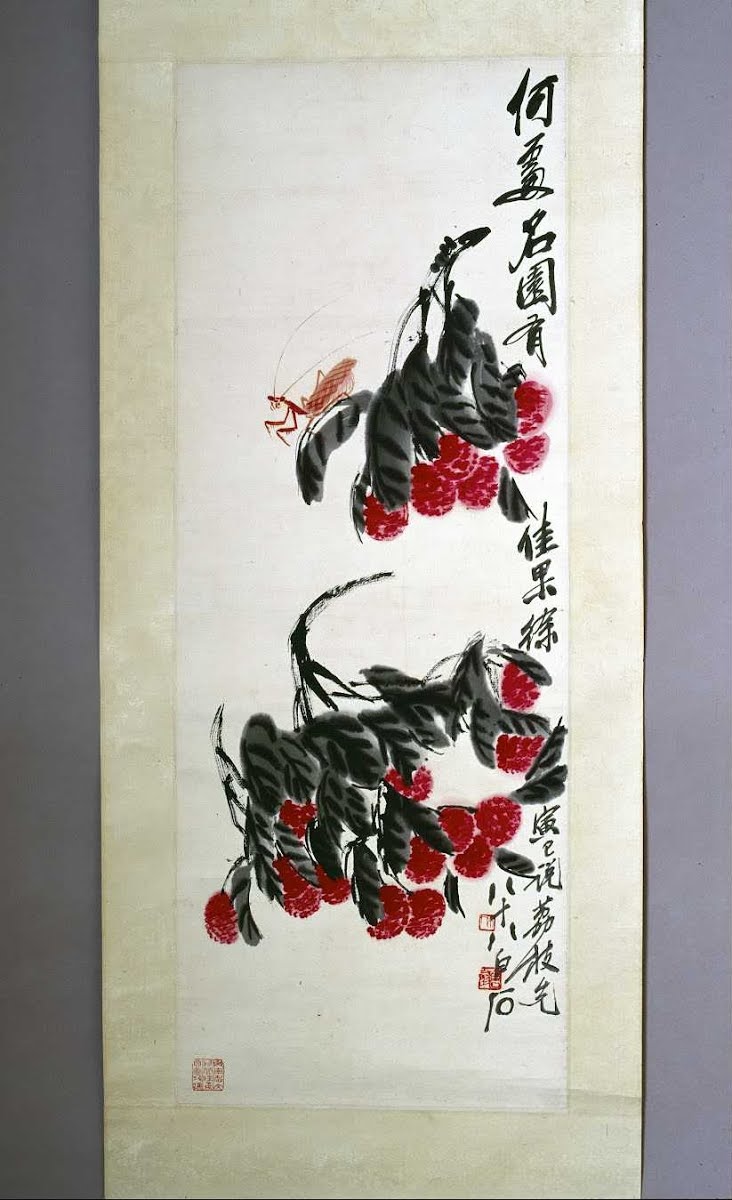 何處名園有佳果徐寅已説荔枝先
八十八白石